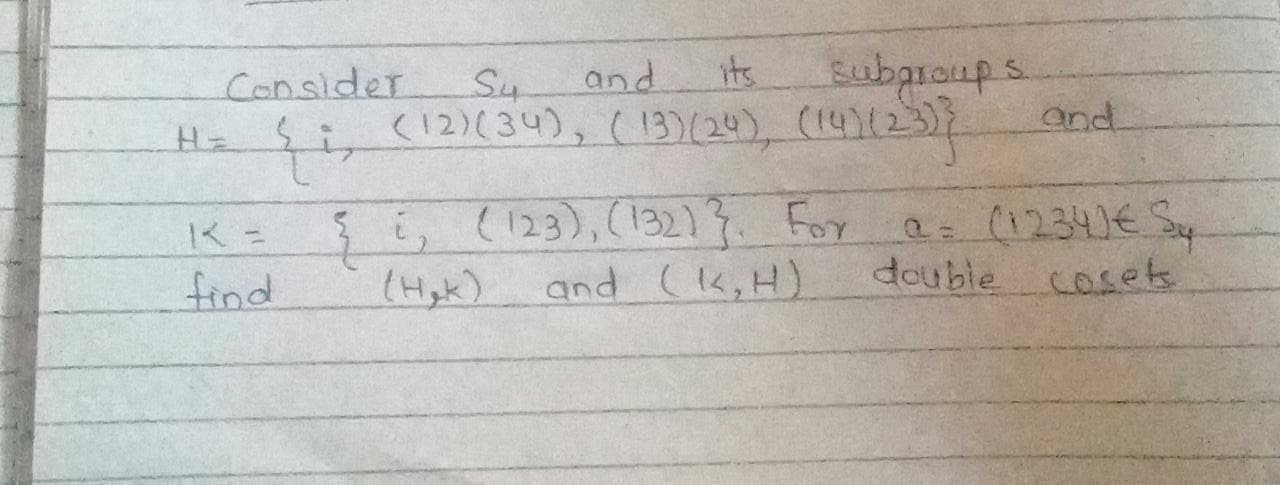 Consider S4 and its subgroups
H = { i, (12)(34), (13)(24), (14)(23)} and
K = { i, (123), (132)}. For a = (1234) ∈ S4
find (H,K) and (K,H) double cosets